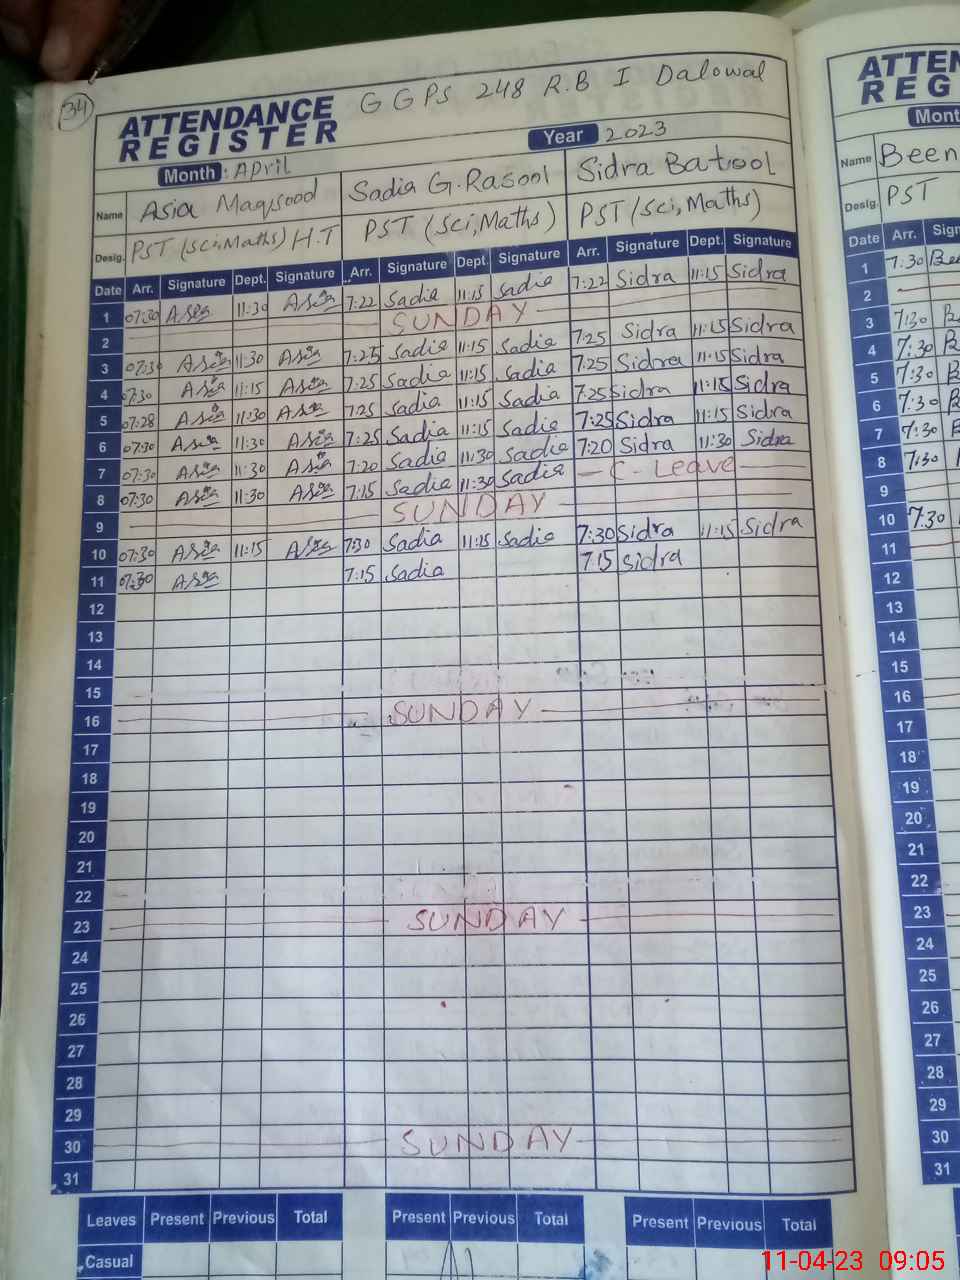 34
ATTENDANCE REGISTER
G GPS 248 R.B I Dalowal
Month : April
Year 2023
Name Asia Maqsood Sadia G.Rasool Sidra Batool
Desig. PST (Sci,Maths) H.T PST (Sci,Maths) PST (Sci,Maths)
Date Arr. Signature Dept. Signature Arr. Signature Dept. Signature Arr. Signature Dept. Signature
1 07:30 Asia 11:30 Asia 7:22 Sadia 11:15 Sadia 7:22 Sidra 11:15 Sidra
2 SUNDAY
3 07:30 Asia 11:30 Asia 7:25 Sadia 11:15 Sadia 7:25 Sidra 11:15 Sidra
4 07:30 Asia 11:15 Asia 7:25 Sadia 11:15 Sadia 7:25 Sidra 11:15 Sidra
5 07:28 Asia 11:30 Asia 7:25 Sadia 11:15 Sadia 7:25 Sidra 11:15 Sidra
6 07:30 Asia 11:30 Asia 7:25 Sadia 11:15 Sadia 7:25 Sidra 11:15 Sidra
7 07:30 Asia 11:30 Asia 7:20 Sadia 11:30 Sadia 7:20 Sidra 11:30 Sidra
8 07:30 Asia 11:30 Asia 7:15 Sadia 11:30 Sadia C - Leave
9 SUNDAY
10 07:30 Asia 11:15 Asia 7:30 Sadia 11:15 Sadia 7:30 Sidra 11:15 Sidra
11 07:30 Asia 7:15 Sadia 7:15 Sidra
12
13
14
15
16 SUNDAY
17
18
19
20
21
22
23 SUNDAY
24
25
26
27
28
29
30 SUNDAY
31
Leaves Present Previous Total Present Previous Total Present Previous Total
Casual
Name Been
Desig. PST
Date Arr.
1 7:30
2
3 7:30
4 7:30
5 7:30
6 7:30
7 7:30
8 7:30
9
10 7:30
11
12
13
14
15
16
17
18
19
20
21
22
23
24
25
26
27
28
29
30
31
11-04-23 09:05